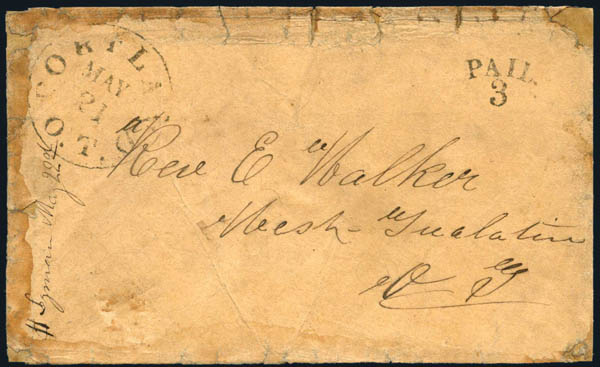 PORTLAND
MAY
21
O.T.
PAID
3
Rev E Walker
West Tualatin
O T
H Lyman May 20th